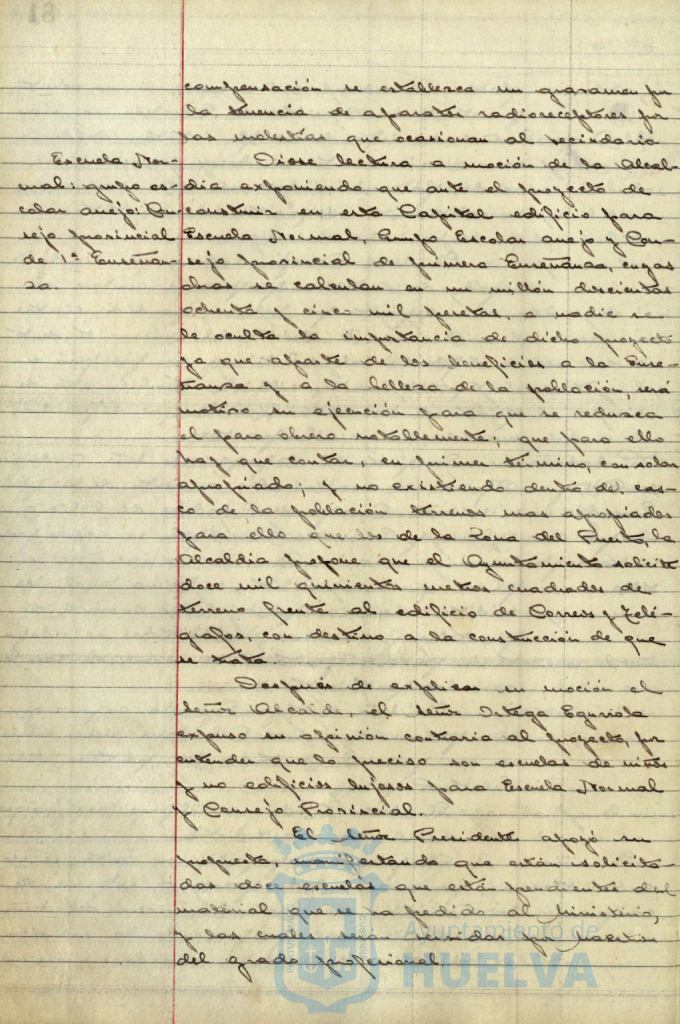 compensación se establezca un gravamen por
la tenencia de aparatos radioreceptores por
las molestias que ocasionan al vecindario
Escuela Nor-
mal: grupo es-
colar anejo: Con-
sejo provincial
de 1ª Enseñan-
za.
Diose lectura a moción de la Alcal-
día exponiendo que ante el proyecto de
construir en esta Capital edificio para
Escuela Normal, Grupo Escolar anejo y Con-
sejo provincial de primera Enseñanza, cuyas
obras se calculan en un millón doscientas
ochenta y cinco mil pesetas, a nadie se
le oculta la importancia de dicho proyecto
ya que aparte de los beneficios a la Ense-
ñanza y a la belleza de la población, será
motivo su ejecución para que se reduzca
el paro obrero notablemente; que para ello
hay que contar, en primer término, con solar
apropiado; y no existiendo dentro del cas-
co de la población terrenos mas apropiados
para ello que los de la Zona del Puerto, la
Alcaldía propone que el Ayuntamiento solicite
doce mil quinientos metros cuadrados de
terreno frente al edificio de Correos y Telé-
grafos, con destino a la construcción de que
se trata.
Después de explicar su moción el
señor Alcalde, el señor Ortega Eguriola
expuso su opinión contraria al proyecto, por
entender que lo preciso son escuelas de niños
y no edificios lujosos para Escuela Normal
y Consejo Provincial.
El señor Presidente apoyó su
propuesta, manifestando que están solicita-
das doce escuelas que están pendientes del
material que se ha pedido al Ministerio,
y las cuales serán servidas por Maestros
del grado profesional.
Ayuntamiento de
HUELVA